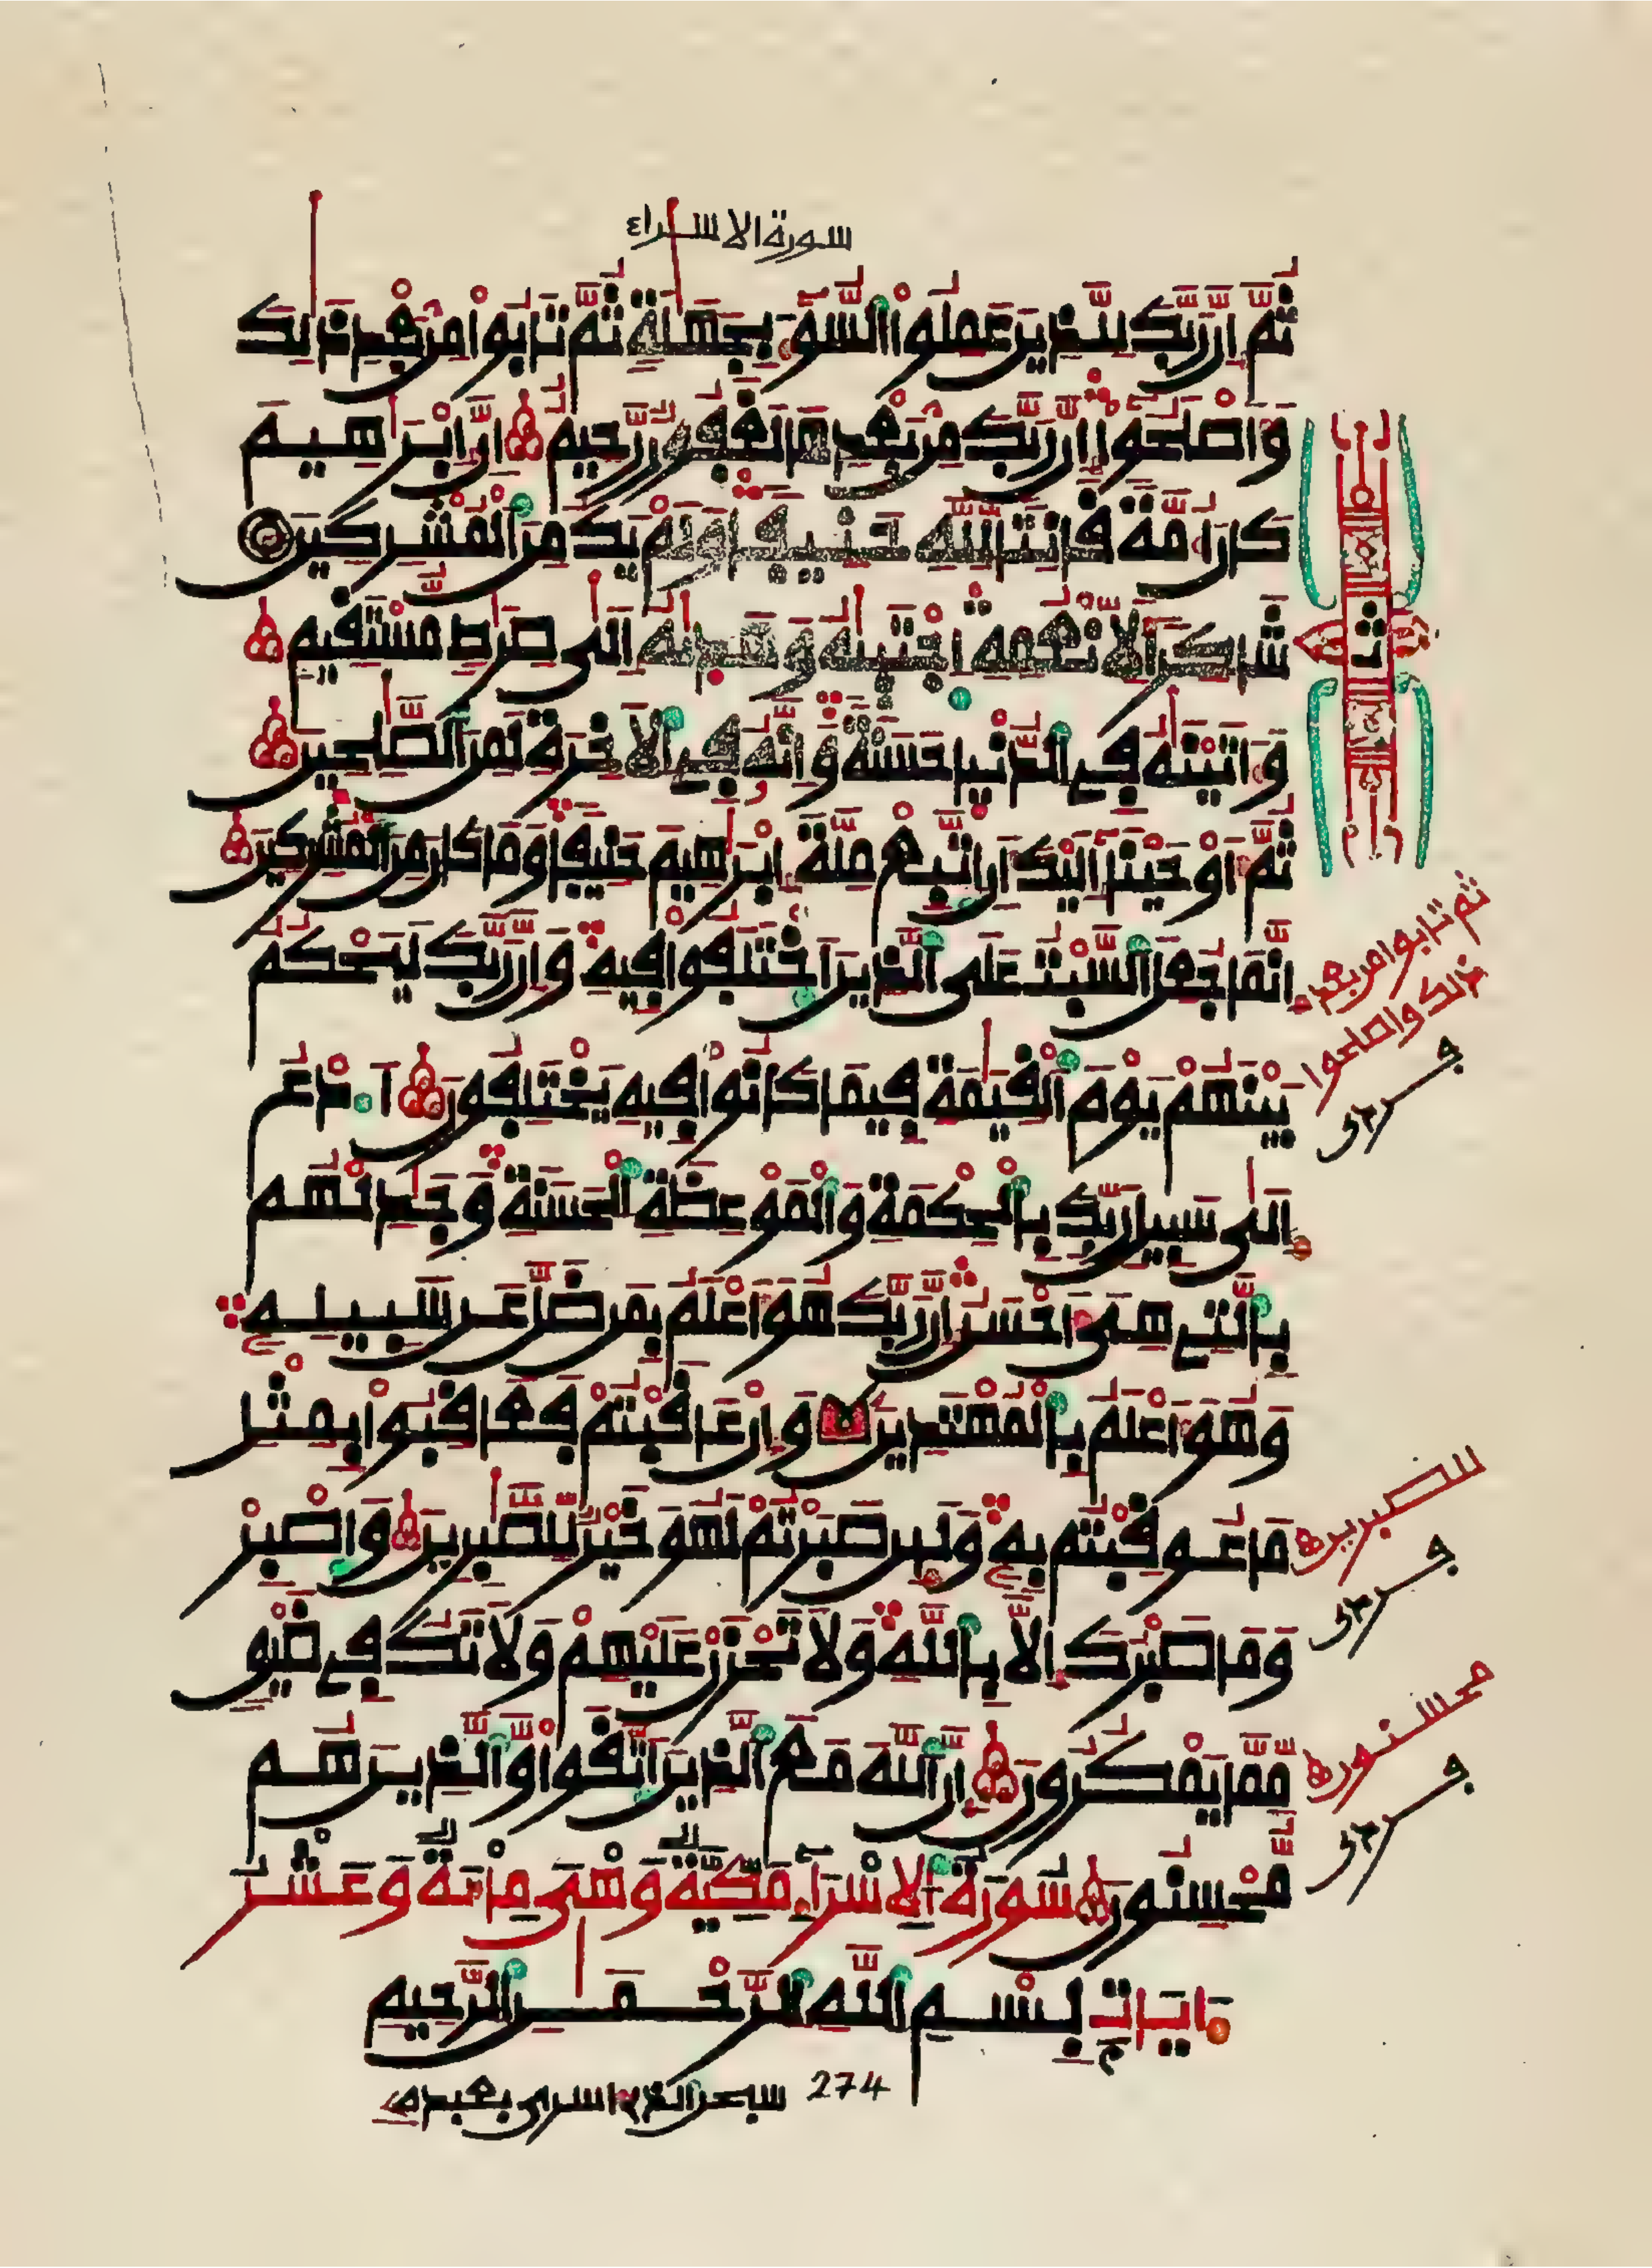 سورة الاسراء
ثُمَّ إِنَّ رَبَّكَ لِلَّذِينَ عَمِلُواْ السُّوٓءَ بِجَهَٰلَةٍ ثُمَّ تَابُواْ مِنۢ بَعْدِ ذَٰلِكَ
وَأَصْلَحُوٓاْ إِنَّ رَبَّكَ مِنۢ بَعْدِهَا لَغَفُورٌ رَّحِيمٌ إِنَّ إِبْرَٰهِيمَ
كَانَ أُمَّةً قَانِتًا لِّلَّهِ حَنِيفًا وَلَمْ يَكُ مِنَ الْمُشْرِكِينَ
شَاكِرًا لِّأَنْعُمِهِ اجْتَبَىٰهُ وَهَدَىٰهُ إِلَىٰ صِرَٰطٍ مُّسْتَقِيمٍ
وَءَاتَيْنَٰهُ فِي الدُّنْيَا حَسَنَةً وَإِنَّهُ فِي الْأَخِرَةِ لَمِنَ الصَّٰلِحِينَ
ثُمَّ أَوْحَيْنَآ إِلَيْكَ أَنِ اتَّبِعْ مِلَّةَ إِبْرَٰهِيمَ حَنِيفًا وَمَا كَانَ مِنَ الْمُشْرِكِينَ
إِنَّمَا جُعِلَ السَّبْتُ عَلَى الَّذِينَ اخْتَلَفُواْ فِيهِ وَإِنَّ رَبَّكَ لَيَحْكُمُ
بَيْنَهُمْ يَوْمَ الْقِيَٰمَةِ فِيمَا كَانُواْ فِيهِ يَخْتَلِفُونَ ادْعُ
إِلَىٰ سَبِيلِ رَبِّكَ بِالْحِكْمَةِ وَالْمَوْعِظَةِ الْحَسَنَةِ وَجَٰدِلْهُم
بِالَّتِي هِيَ أَحْسَنُ إِنَّ رَبَّكَ هُوَ أَعْلَمُ بِمَن ضَلَّ عَن سَبِيلِهِ
وَهُوَ أَعْلَمُ بِالْمُهْتَدِينَ وَإِنْ عَاقَبْتُمْ فَعَاقِبُواْ بِمِثْلِ
مَا عُوقِبْتُم بِهِ وَلَئِن صَبَرْتُمْ لَهُوَ خَيْرٌ لِّلصَّٰبِرِينَ وَاصْبِرْ
وَمَا صَبْرُكَ إِلَّا بِاللَّهِ وَلَا تَحْزَنْ عَلَيْهِمْ وَلَا تَكُ فِي ضَيْقٍ
مِّمَّا يَمْكُرُونَ إِنَّ اللَّهَ مَعَ الَّذِينَ اتَّقَواْ وَّالَّذِينَ هُم
مُّحْسِنُونَ سُورَةُ الْإِسْرَآءِ مَكِّيَّةٌ وَهْيَ مِائَةٌ وَعَشْرُ
ءَايَاتٍ بِسْمِ اللَّهِ الرَّحْمَٰنِ الرَّحِيمِ
274 سبحن الذي اسرى بعبده
ثمن
ثم تابوا من بعد
ذلك واصلحوا
للصبرين
محسنون